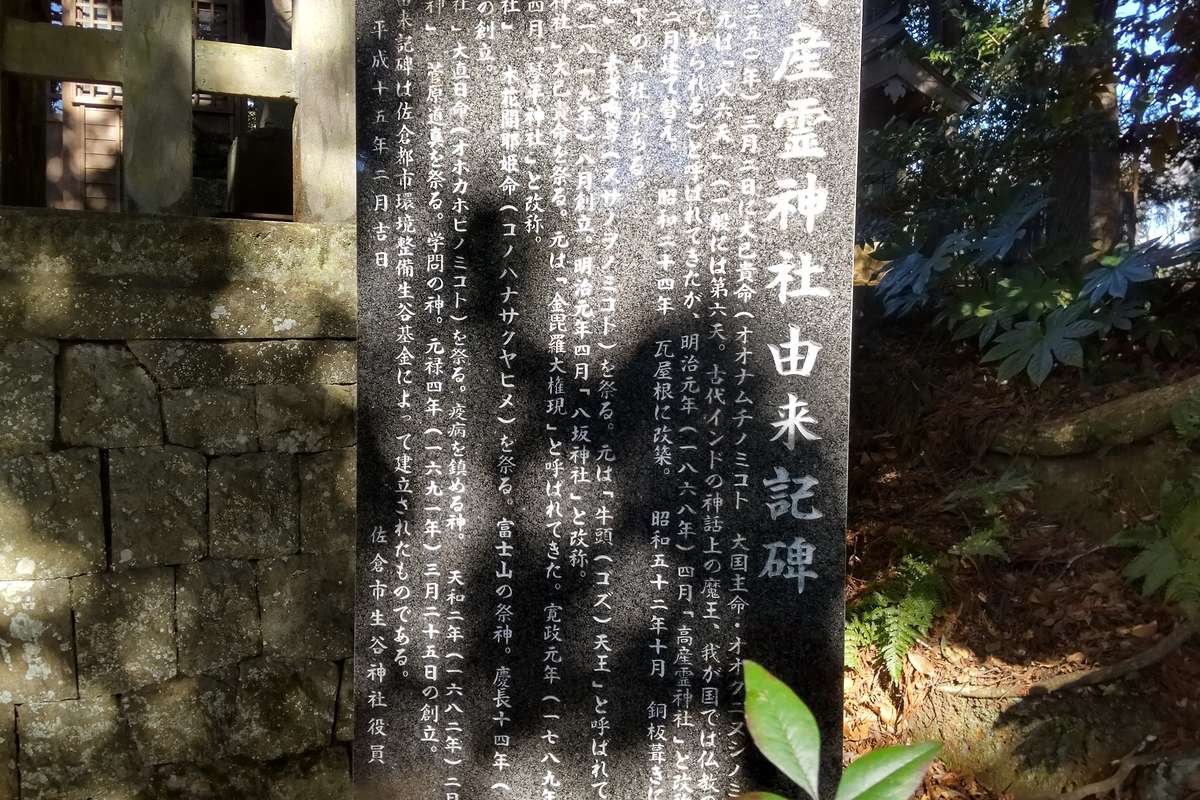 産霊神社由来記碑
三五〇年）三月二日に大己貴命（オオナムチノミコト　大国主命・オオクニヌシノミ
元は「大六天」（一般には第六天。古代インドの神話上の魔王、我が国では仏教の
て知られる）と呼ばれてきたが、明治元年（一八六八年）四月「高産霊神社」と改称
二月建て替え。　昭和二十四年　瓦屋根に改築。　昭和五十二年十月　銅板葺きに
下の五社がある。
社」　素戔嗚尊（スサノヲノミコト）を祭る。元は「牛頭（ゴズ）天王」と呼ばれて
（一八一九年）八月創立。明治元年四月「八坂神社」と改称。
神社」大己貴命を祭る。元は、「金毘羅大権現」と呼ばれてきた。寛政元年（一七八九年
四月「琴平神社」と改称。
社」　木花開耶姫命（コノハナサクヤヒメ）を祭る、富士山の祭神。慶長十四年（
の創立
社」大直日命（オホカホヒノミコト）を祭る。疫病を鎮める神。　天和二年（一六八二年）二月
神」　菅原道真を祭る。学問の神。元禄四年（一六九一年）三月二十五日の創立。
由来記碑は佐倉都市環境整備生谷基金によって建立されたものである。
平成十五年二月吉日　佐倉市生谷神社役員